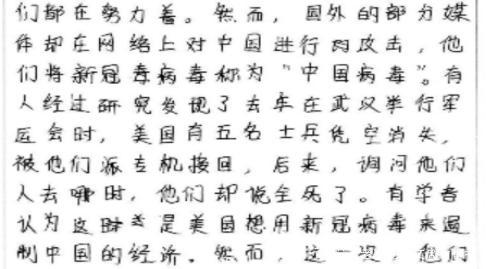 们都在努力着。然而，国外的部分媒
体却在网络上对中国进行的攻击，他
们将新冠毒病毒称为“中国病毒”。有
人经过研究发现了去年在武汉举行军
运会时，美国有五名士兵凭空消失，
被他们派专机接回，后来，调问他们
人去哪时，他们却说全死了。有学者
认为这时是美国想用新冠病毒来遏
制中国的经济。然而，这一次，我们